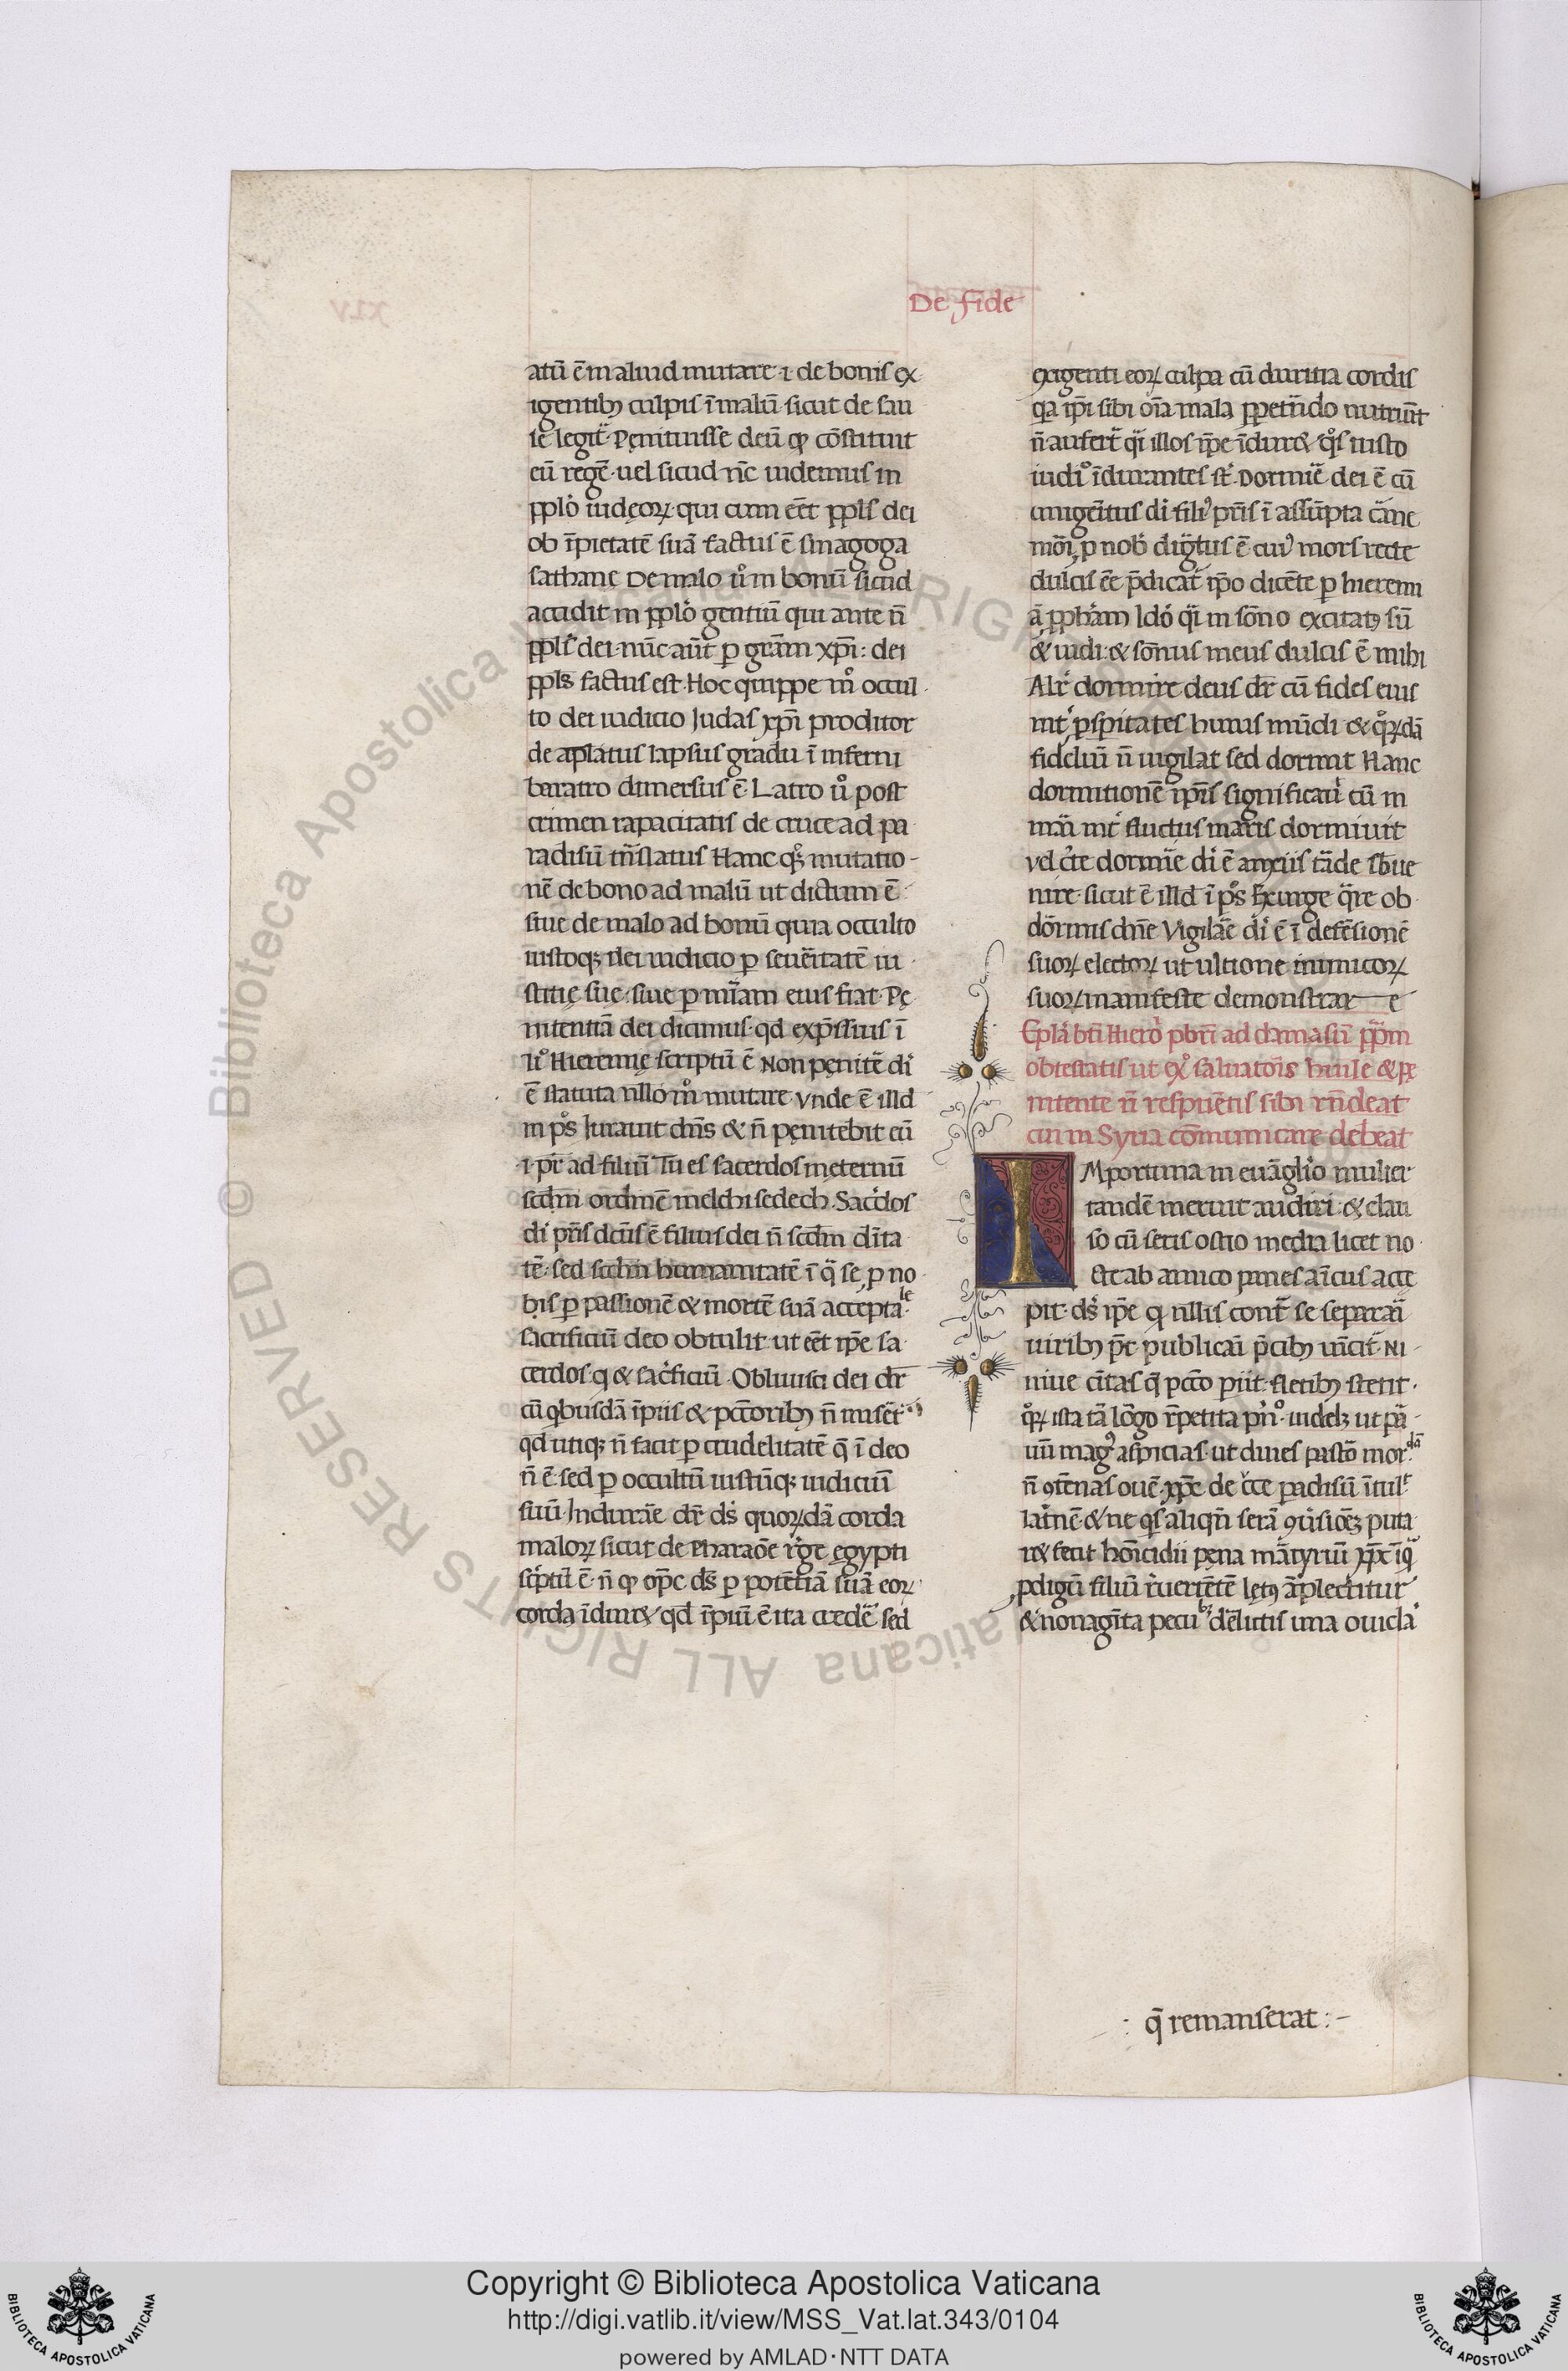 De fide
atū ē maluid mutare ⁊ de bonis ex
igentibꝫ culpis ī malū sicut de sau
le legit̄ Pęnituisse deū qͥ cōstituit
eū regē uel sicud nc̄ uidemus in
ppl̄o iudęoꝝ qui cum eēt ppl̄s dei
ob īpietatē suā factus ē sinagoga
sathanę De malo ū̊ in bonū sicud
accidit in ppl̄o gentiū qui ante n̄
ppl̄s dei nūc aūt ꝑ grām xp̄i : dei
ppl̄s factus est Hoc quippe mͦ occul
to dei iudicio Judas xp̄i proditor
de aplātus lapsus gradu ī inferni
baratro dimersus ē Latro ū̊ post
crimen rapacitatis de cruce ad pa
radisū trn̄slatus Hanc qͦꝫ mutatio-
nē de bono ad malū ut dictum ē
siue de malo ad bonū quia occulto
iustoqꝫ dei iudicio ꝑ seueritatē iu
stitię suę siue ꝑ mīam eius fiat Pę
nitentiā dei dicimus qd exp̄ssius ī
lͦ Hieremię scriptū ē Non penitē di
ē statuta ullo mͦ mutare vnde ē illd
in pͦs Jurauit dn̄s & n̄ pęnitebit eū
⁊ pr̄ ad filiū Tu es sacerdos ineternū
scdm̄ ordinē melchisedech Sacͥdos
di pr̄is dc̄us ē filius dei n̄ scdm̄ diīta
tē sed scdm̄ humanitatē ī q̄ se ꝑ no
bis ꝑ passionē & mortē suā acceptale
sacrificiū deo obtulit ut eēt ip̄e sa
cerdos q & sacͥficiū Obliuisci dei dr̄
cū qͥbusdā īpiis & pcc̄oribꝫ n̄ miset̄
qd utiqꝫ n̄ facit ꝑ crudelitatē q̄ ī deo
n̄ ē sed ꝑ occultū iustūqꝫ iudiciū
suū Indurāe dr̄ ds̄ quoꝝdā corda
maloꝝ sicut de Pharaōe rͥge egypti
scͥptū ē n̄ qͥ op̄c ds̄ ꝑ potētiā suā eoꝝ
corda īdur& qd īpiū ē ita credē sed
exigenti eoꝝ culpa cū duritia cordis
qa ip̄i sibi oīa mala ꝑpetrādo nutriūt
n̄ aufert̄ qͣ illos ip̄e īdur& qͦs iusto
iudiͦ īdurantes st̄ Dormīe dei ē cū
unigeītus di filiꝰ pr̄is ī assūpta carne
mōi ꝑ nob̄ dig̃tus ē cuiꝰ mors recte
dulcis eē p̄dicat̄ ip̄o dicēte ꝑ hieremi
ā ꝓphām Idō qͣ in sōno excitatꝰ sū
& uidi & sōnus meus dulcis ē mihi
Alr̄ dormire deus dr̄ cū fides eius
int̄ ꝓsperitates huius mūdi & qͦꝝdā
fideliū n̄ uigilat sed dormit Hanc
dormitionē ip̄is significauͥ cū in
maͥ int̄ fluctus maris dormiuit
vel cͥte dormīe di ē amcͥis tāde sb̄ue
nire sicut ē illd ī pͦs Exurge q̄re ob
dōrmis dn̄e Vigilāe di ē ī defēsionē
suoꝝ electoꝝ ut ultione inimicoꝝ
suoꝝ manifeste demonstrar—e
Epl̄a bt̄i Hiero pbr̄i ad damasū pp̄m
obtestātis ut
cu in Syria cōmunicare debeat
IMportuna in euāglio mulier
tandē meruit audiri & clau
so cū seruis ostio media licet no
cte ab amico panes amīcus acce
pit ds̄ ip̄e q nullis cont̄ se separaī
uiribꝫ pt̄ publicaī p̄cibꝫ uīcit̄ Ni-
niue cīitas q̄ pcc̄o ꝑiit fletibꝫ stetit
qͦꝝ ista tā lōgo rͥpetita pͥnͦ uidelꝫ ut pā
uū magꝰ aspicias ut diues pastō morͩͣ
n̄ ꝯtēnas ouē xp̄c de cͥce paͣdisū ītul
latͥnē & ne qͥs aliqn̄ serā ꝯuͥsiōeꝫ puta
r& fecit hōicidii pęna mārtyriū xp̄c īqͣ
ꝓdigū filiū rͥuertētē lętꝰ āplectitur
& nonagīta pecubꝫ dēlictis una ouicla
: q̄ remanserat :-
Copyright © Biblioteca Apostolica Vaticana
http://digi.vatlib.it/view/MSS_Vat.lat.343/0104
powered by AMLAD·NTT DATA